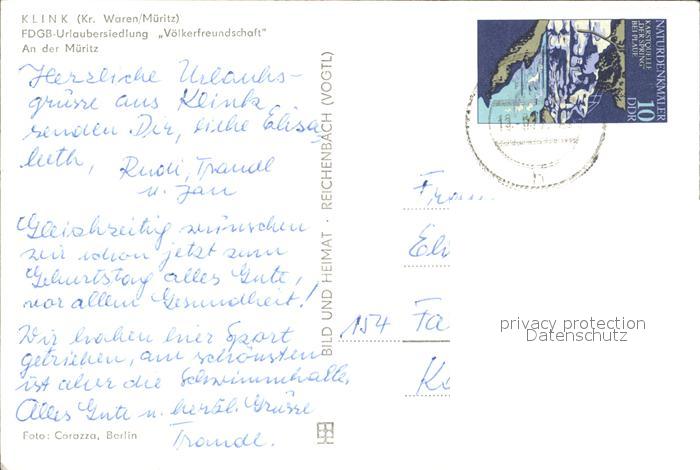 KLINK (Kr. Waren/Müritz)
FDGB-Urlaubersiedlung „Völkerfreundschaft"
An der Müritz
Herzliche Urlaubs-
grüsse aus Klink
senden Dir, liebe Elisa-
beth,
Rudi, Traudl
u. Jan
Gleichzeitig wünschen
wir schon jetzt zum
Geburtstag alles Gute,
vor allem Gesundheit!
Wir haben hier Sport
getrieben, am schönsten
ist aber die Schwimmhalle.
Alles Gute u. herzl. Grüsse
Traudl.
Foto: Corazza, Berlin
BILD UND HEIMAT · REICHENBACH (VOGTL)
NATURDENKMÄLER
KARSTQUELLE
„DER SPRING"
BEI PLAUE
10
DDR
Frau
Eli
154 Fa
privacy protection
Datenschutz